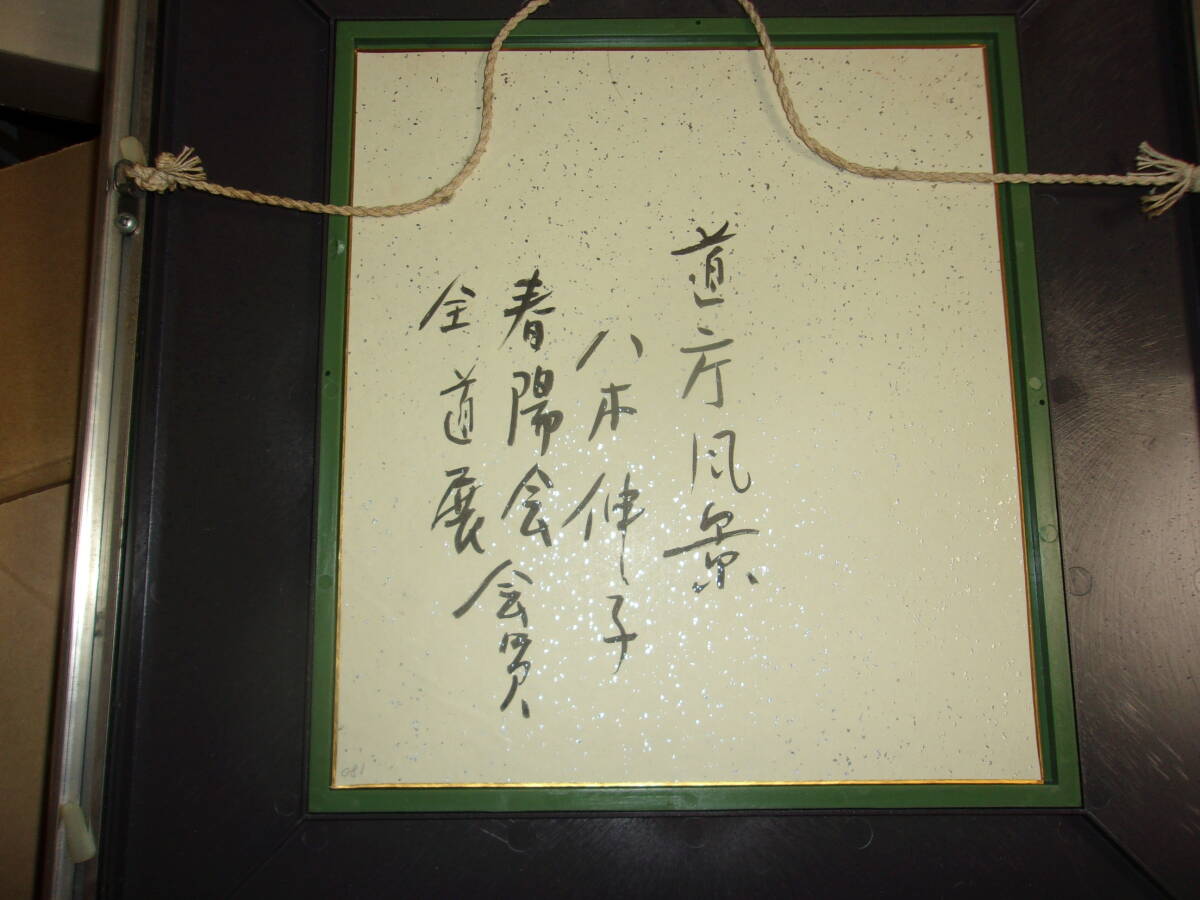 道庁風景
八木伸子
春陽会会員
全道展
180